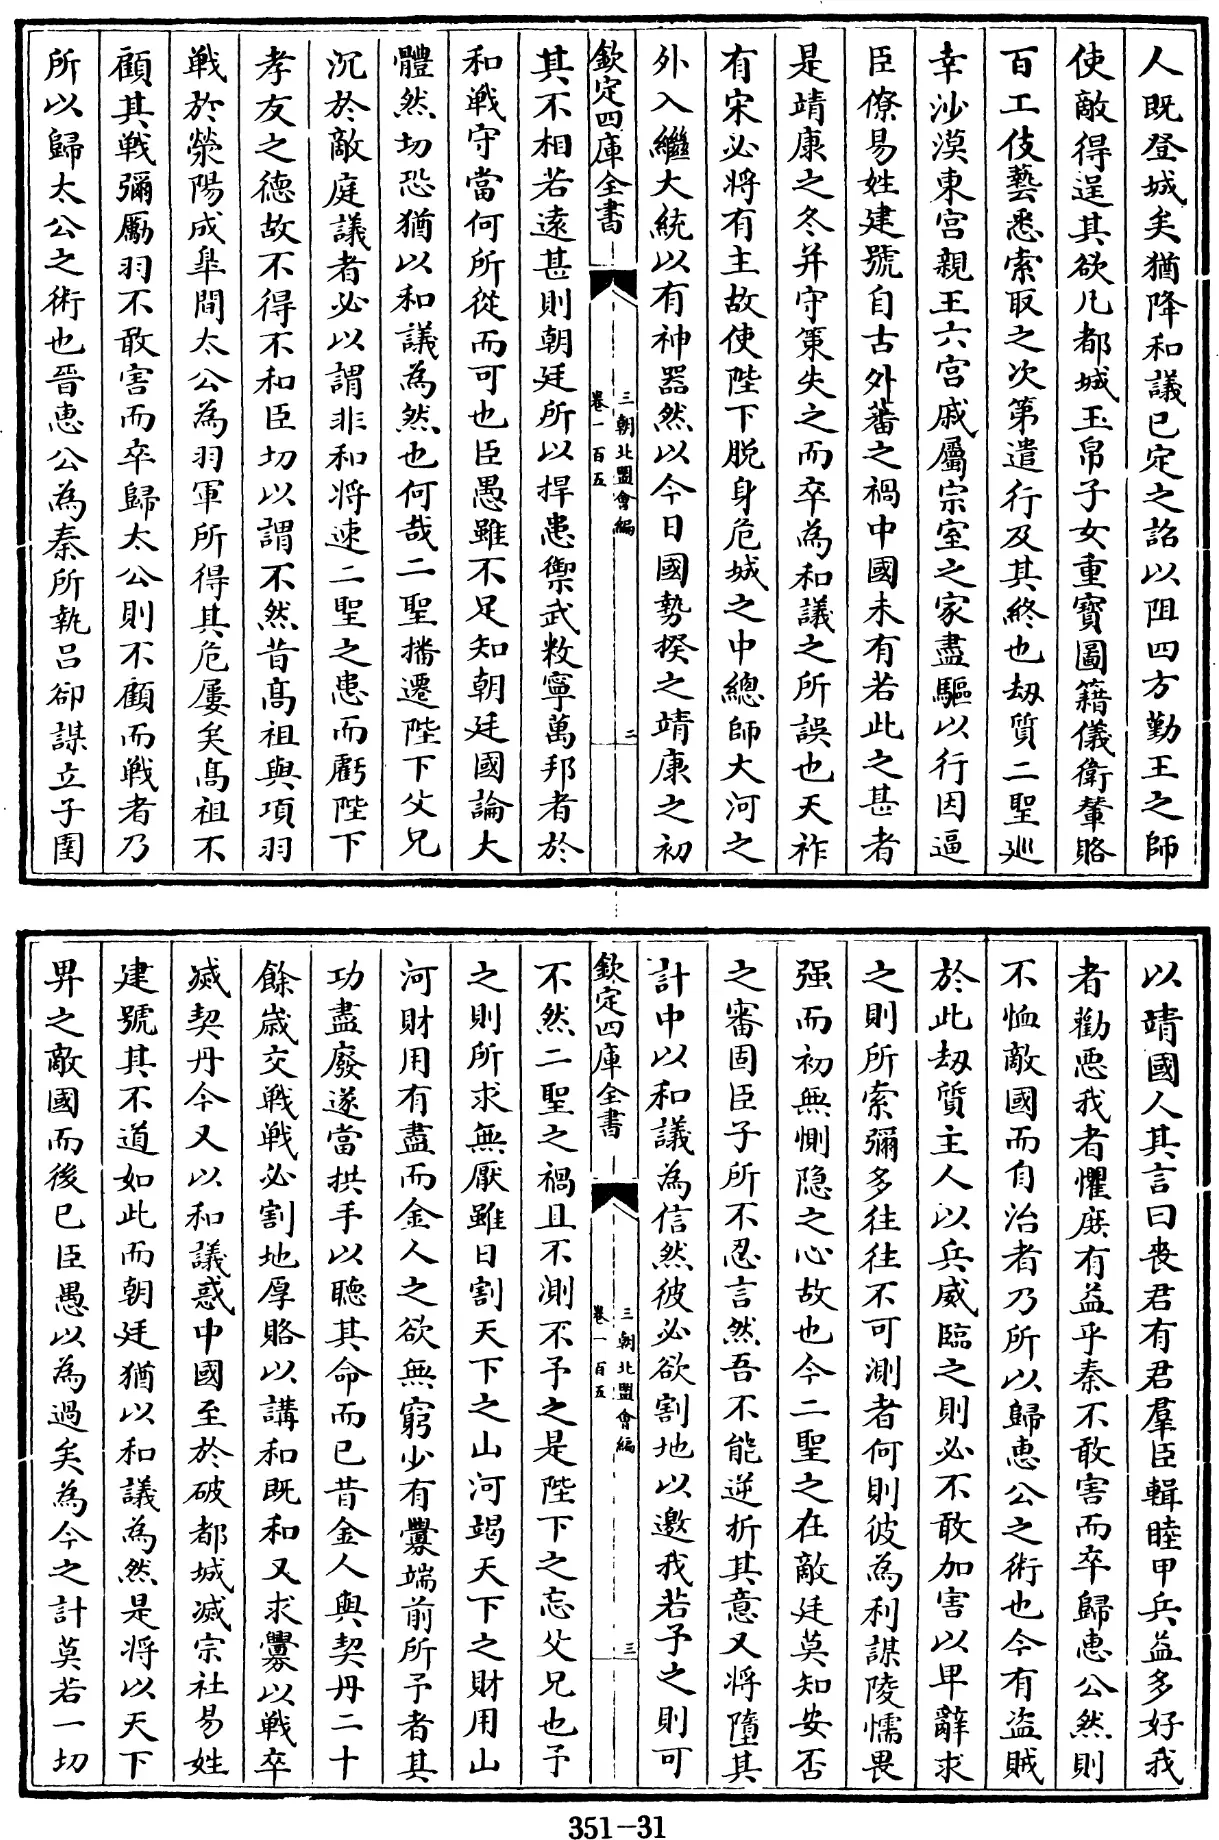 人既登城矣猶降和議已定之詔以阻四方勤王之師
使敵得逞其欲凡都城玉帛子女重寶圖籍儀衛輦賂
百工伎藝悉索取之次第遣行及其終也刼質二聖巡
幸沙漠東宫親王六宫戚屬宗室之家盡驅以行因逼
臣僚易姓建號自古外蕃之禍中國未有若此之甚者
是靖康之冬并守策失之而卒為和議之所誤也天祚
有宋必將有主故使陛下脱身危城之中總師大河之
外入繼大統以有神器然以今日國勢揆之靖康之初
欽定四庫全書
三朝北盟會編
卷一百五
二
其不相若逺甚則朝廷所以捍患禦武敉寧萬邦者於
和戰守當何所從而可也臣愚雖不足知朝廷國論大
體然切恐猶以和議為然也何哉二聖播遷陛下父兄
沉於敵庭議者必以謂非和將速二聖之患而虧陛下
孝友之德故不得不和臣切以謂不然昔髙祖與項羽
戰於滎陽成臯間太公為羽軍所得其危屢矣髙祖不
顧其戰彌厲羽不敢害而卒歸太公則不顧而戰者乃
所以歸太公之術也晋恵公為秦所執呂郤謀立子圉
以靖國人其言曰喪君有君羣臣輯睦甲兵益多好我
者勸惡我者懼庶有益乎秦不敢害而卒歸恵公然則
不恤敵國而自治者乃所以歸恵公之術也今有盗賊
於此刼質主人以兵威臨之則必不敢加害以卑辭求
之則所索彌多往往不可測者何則彼為利謀陵懦畏
强而初無惻隐之心故也今二聖之在敵廷莫知安否
之審固臣子所不忍言然吾不能逆折其意又將墮其
計中以和議為信然彼必欲割地以邀我若予之則可
欽定四庫全書
三朝北盟會編
卷一百五
三
不然二聖之禍且不測不予之是陛下之忘父兄也予
之則所求無厭雖日割天下之山河竭天下之財用山
河財用有盡而金人之欲無窮少有釁端前所予者其
功盡廢遂當拱手以聽其命而已昔金人與契丹二十
餘歳交戰戰必割地厚賂以講和既和又求釁以戰卒
滅契丹今又以和議惑中國至於破都城滅宗社易姓
建號其不道如此而朝廷猶以和議為然是將以天下
畀之敵國而後已臣愚以為過矣為今之計莫若一切
351-31